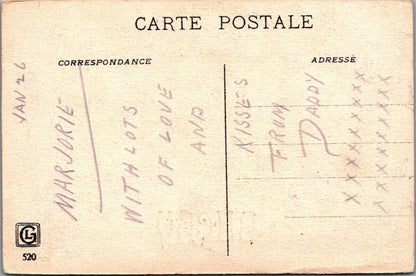 CARTE POSTALE
CORRESPONDANCE
ADRESSÉ
JAN 26
MARJORIE
WITH LOTS
OF LOVE
AND
KISSES
FROM
DADDY
XXXXXXXXX
XXXXXXXXX
GL
520